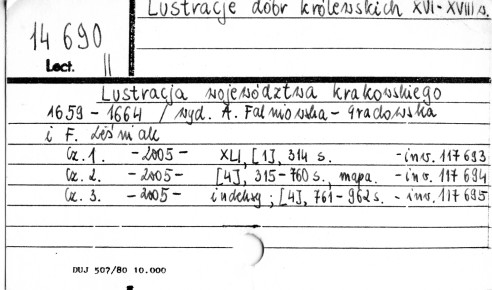 Lustracje dóbr królewskich XVI-XVIII w.
14 690
Lect. II
Lustracja województwa krakowskiego
1659-1664 / wyd. A. Falniowska-Gradowska
i F. Leśniak
Cz. 1. -2005- XLI, [1], 314 s. -inw. 117 693
Cz. 2. -2005- [4], 315-760 s., mapa. -inw. 117 694
Cz. 3. -2005- indeksy ; [4], 761-962 s. -inw. 117 695
DUJ 507/80 10.000